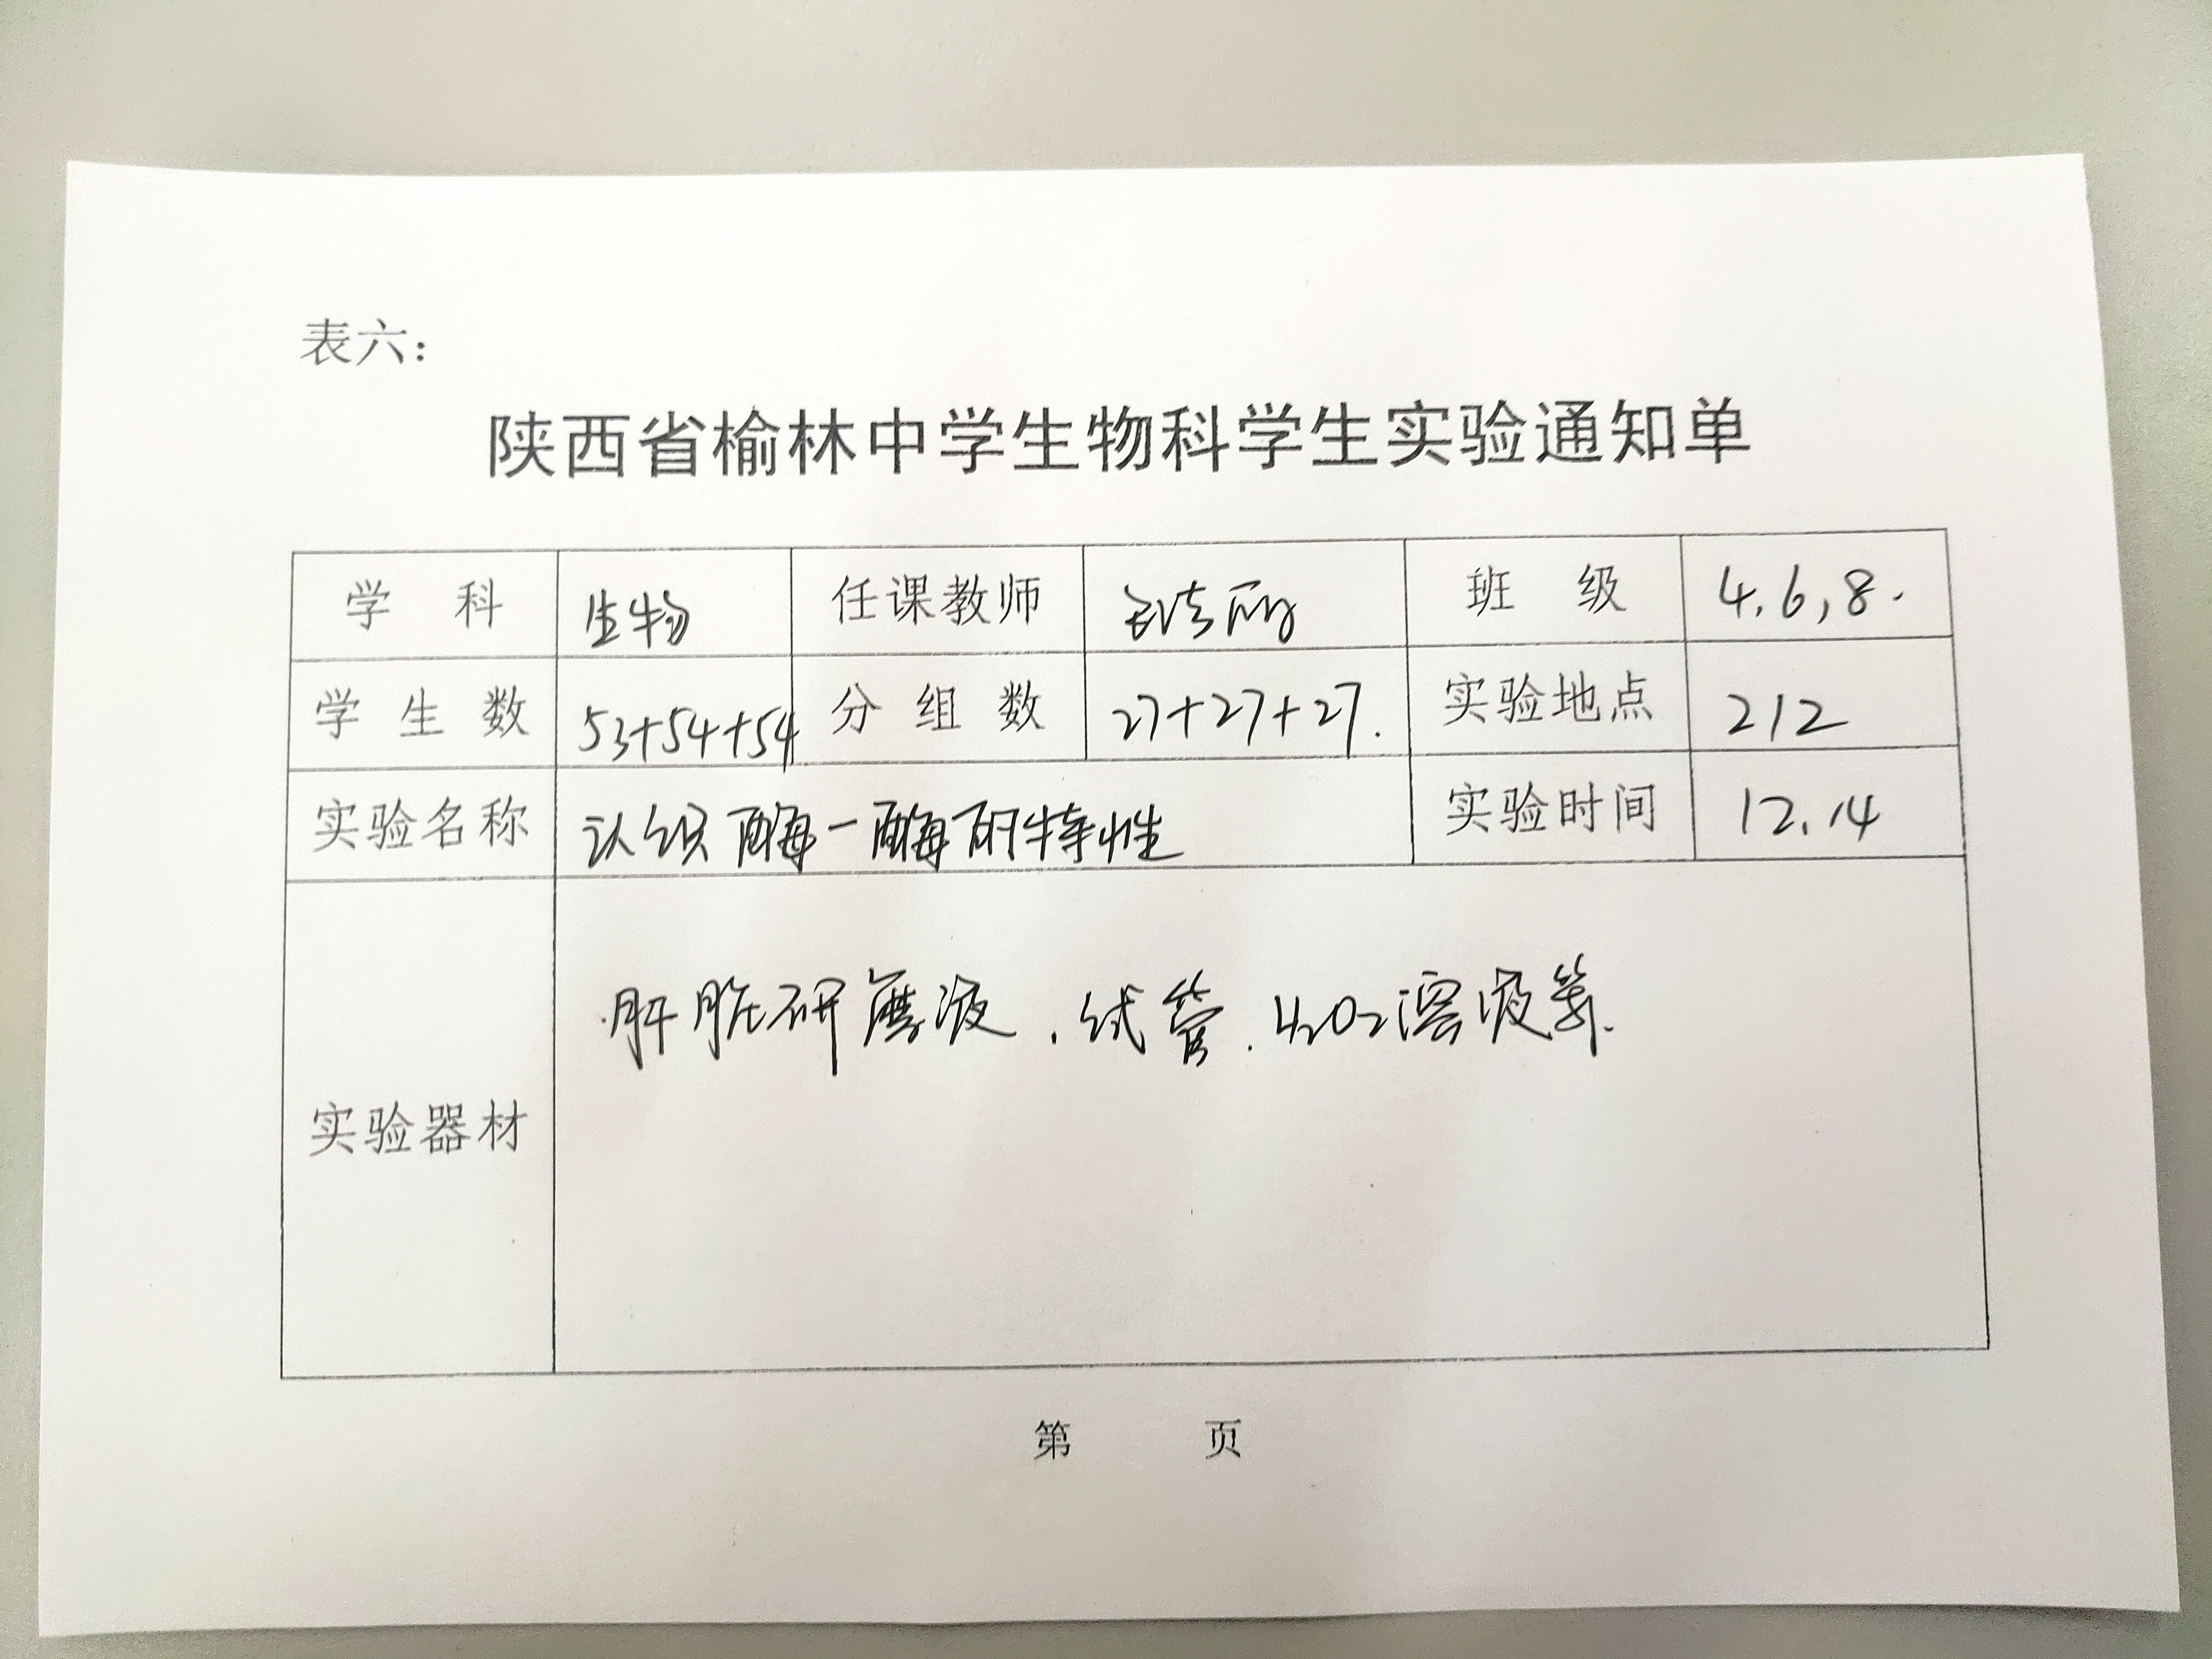 表六：
陕西省榆林中学生物科学生实验通知单
学 科 生物 任课教师 班 级 4,6,8.
学 生 数 53+54+54 分 组 数 27+27+27. 实验地点 212
实验名称 认识酶—酶的特性 实验时间 12.14
实验器材 肝脏研磨液、试管、H₂O₂溶液等.
第 页